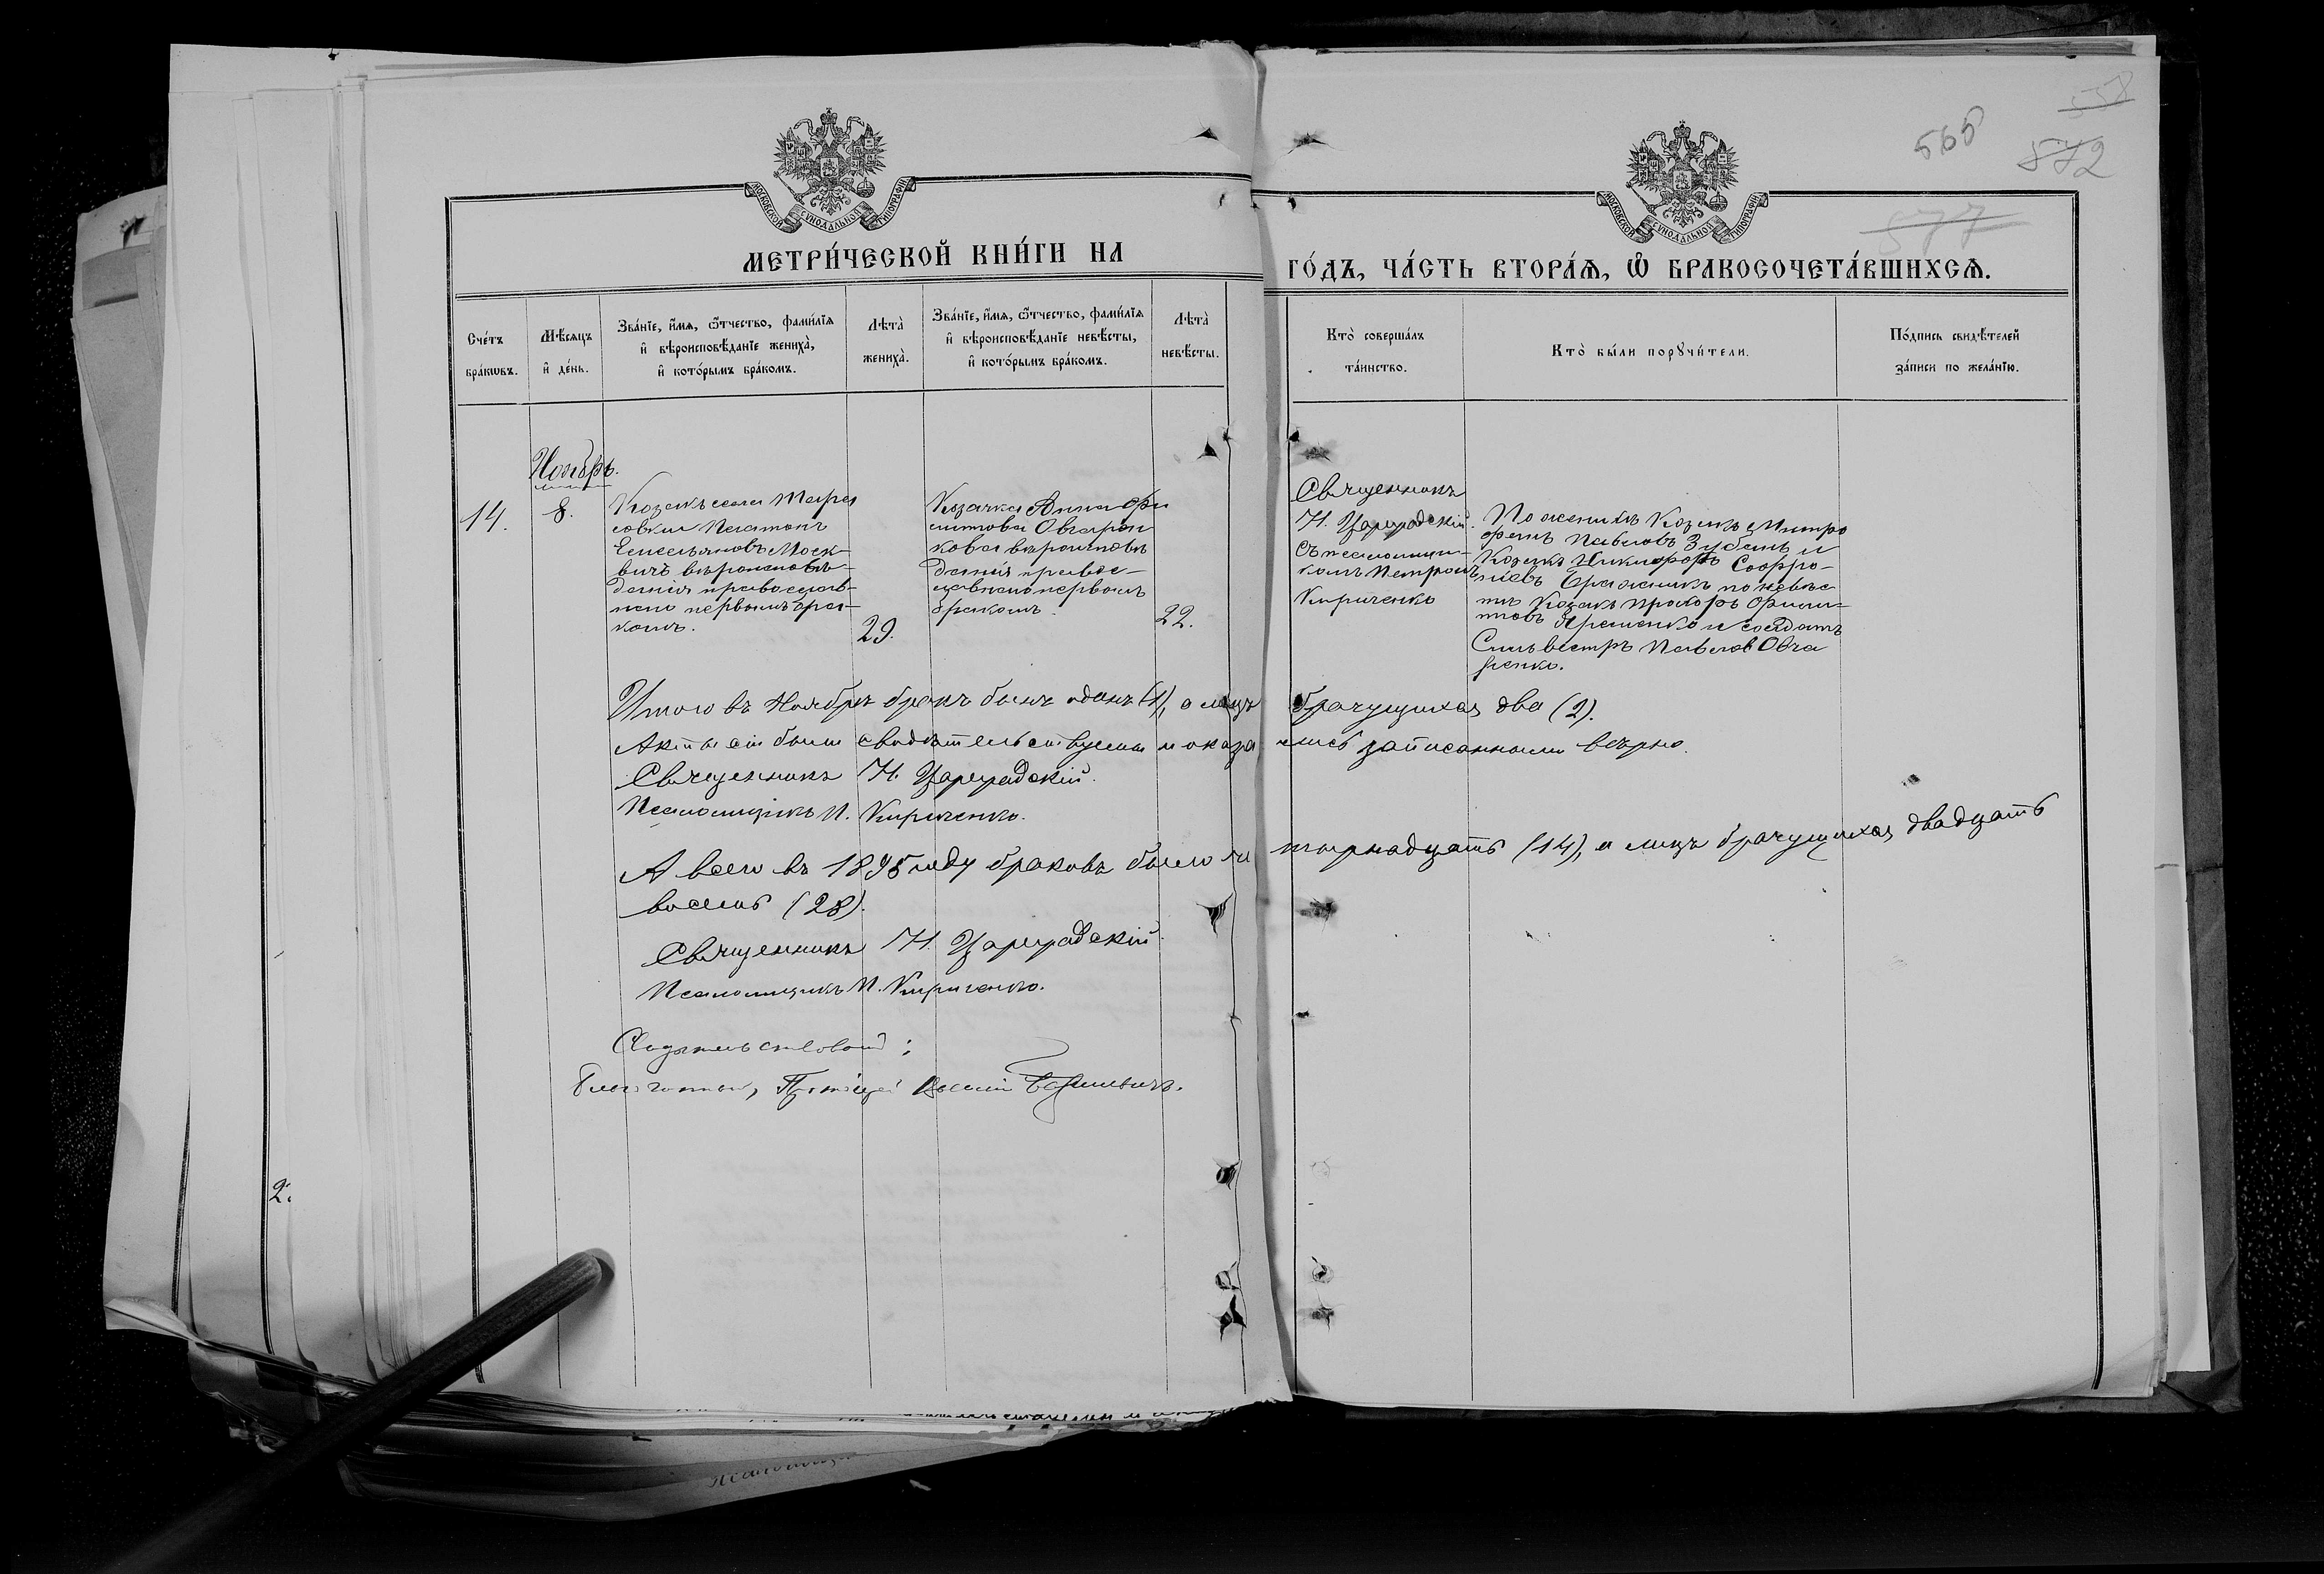 558
565
572
577
МОСКОВСКОЙ СѴНОДАЛЬНОЙ ТИПОГРАФІИ
МОСКОВСКОЙ СѴНОДАЛЬНОЙ ТИПОГРАФІИ
МЕТРИ́ЧЕСКОЙ КНИ́ГИ НА
ГО́ДЪ, ЧА́СТЬ ВТОРА́Ѧ, Ѽ БРАКОСОЧЕТА́ВШИХСѦ.
Сче́тъ
бра́кѡвъ.
Мѣ́сѧцъ
и҆ де́нь.
Зва́нїе, и҆́мѧ, ѻ҆́тчество, фами́лїѧ
и҆ вѣроисповѣ́данїе жениха̀,
и҆ кото́рымъ бра́комъ.
Лѣта̀
жениха̀.
Зва́нїе, и҆́мѧ, ѻ҆́тчество, фами́лїѧ
и҆ вѣроисповѣ́данїе невѣ́сты,
и҆ кото́рымъ бра́комъ.
Лѣта̀
невѣ́сты.
Кто̀ соверша́лъ
та́инство.
Кто̀ бы́ли порꙋчи́тели.
По́дпись свидѣ́телей
за́писи по жела́нїю.
Ноябрь.
14.
8.
Козакъ села Тара
совки Платонъ
Емельяновъ Моск-
вичъ вѣроисповѣ-
данія православ-
наго первымъ бра-
комъ.
29.
Козачка Анна Фи
литова Овчарен
кова вѣроисповѣ
данія правос-
лавнаго первымъ
бракомъ.
22.
Священникъ
Н. Цареградскій.
съ псаломщи-
комъ Петромъ
Кириченко
По женихѣ Козакъ Митро
фанъ Павловъ Зубань и
Козакъ Никифоръ Софро-
ніевъ Бражникъ по невѣс
тѣ Козакъ Прохоръ Филип-
повъ Яременко и солдатъ
Сильвестръ Павлов Овча
ренко.
Итого въ Ноябрѣ бракъ былъ одинъ (1), а лицъ брачущихся два (2).
Акты сіи были свидѣтельствуемы и оказа лись записанными вѣрно.
Священникъ Н. Цареградскій.
Псаломщикъ П. Кириченко.
А всего въ 1895 году браковъ было че тырнадцать (14), а лицъ брачущихся двадцать
восемь (28).
Священникъ Н. Цареградскій.
Псаломщикъ П. Кириченко.
Свидѣтельствовалъ:
Благочинный, Протоіерей Василій
2.